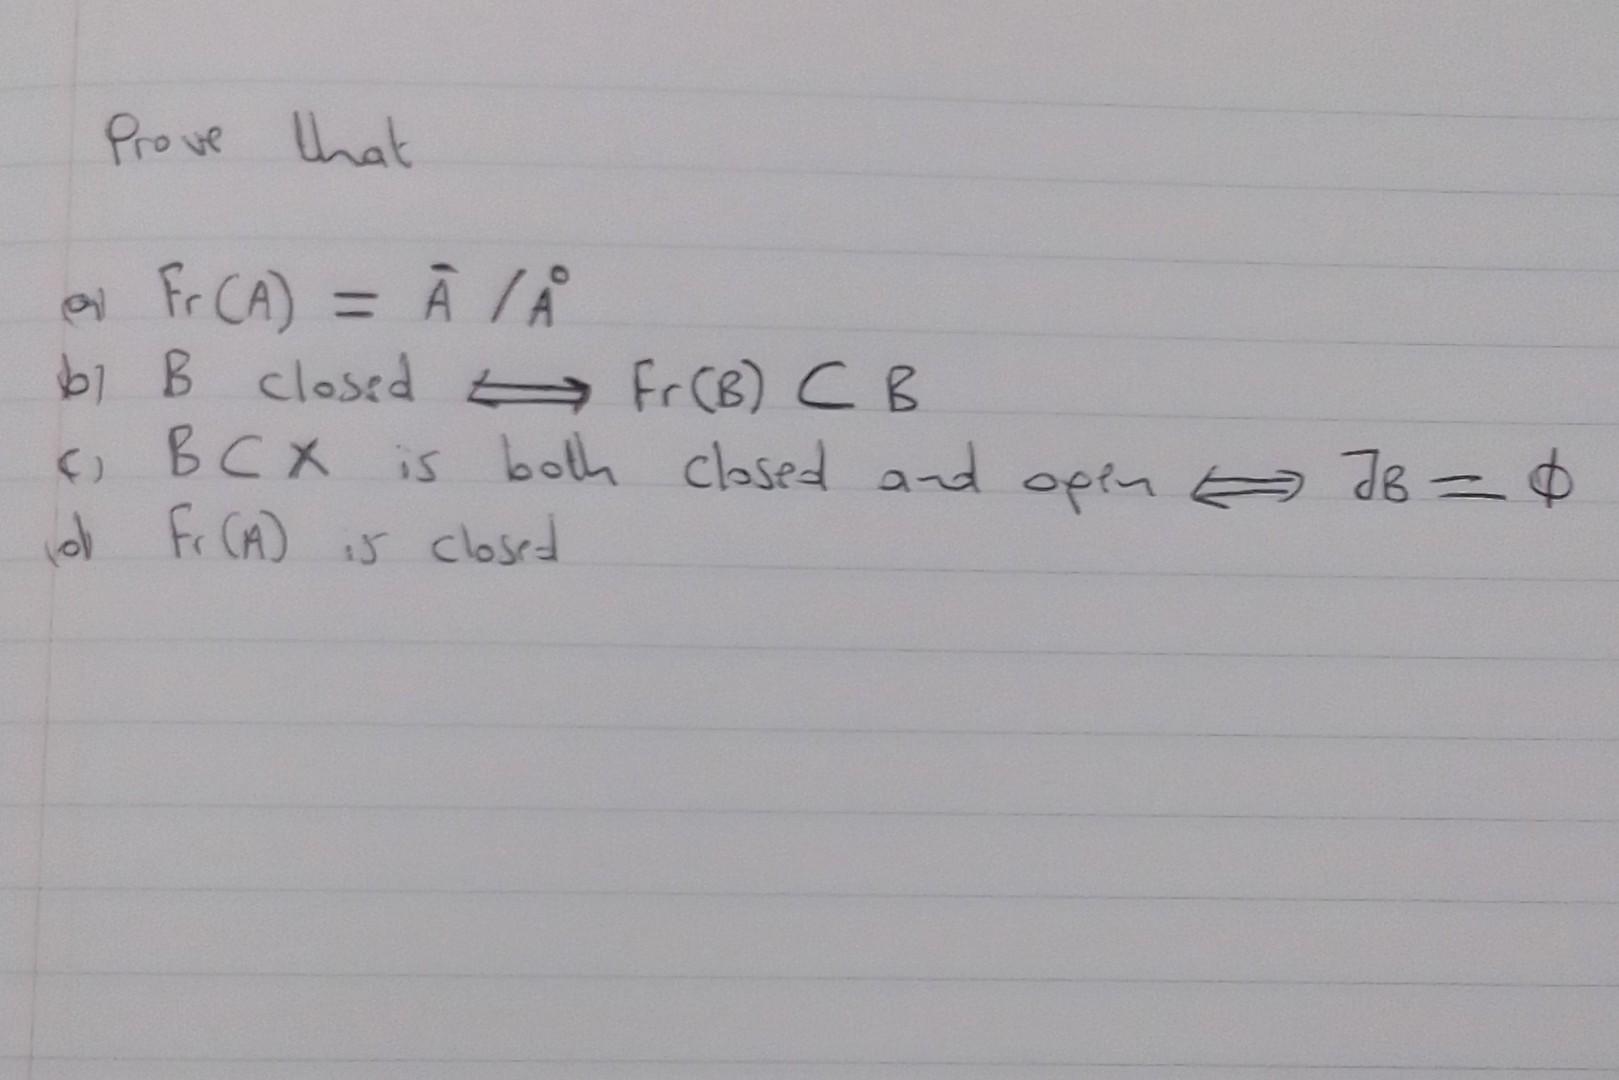 Prove that
a) Fr(A) = Ā / Å
b) B closed ⟺ Fr(B) ⊂ B
c) B ⊂ X is both closed and open ⟺ ∂B = ϕ
d) Fr(A) is closed